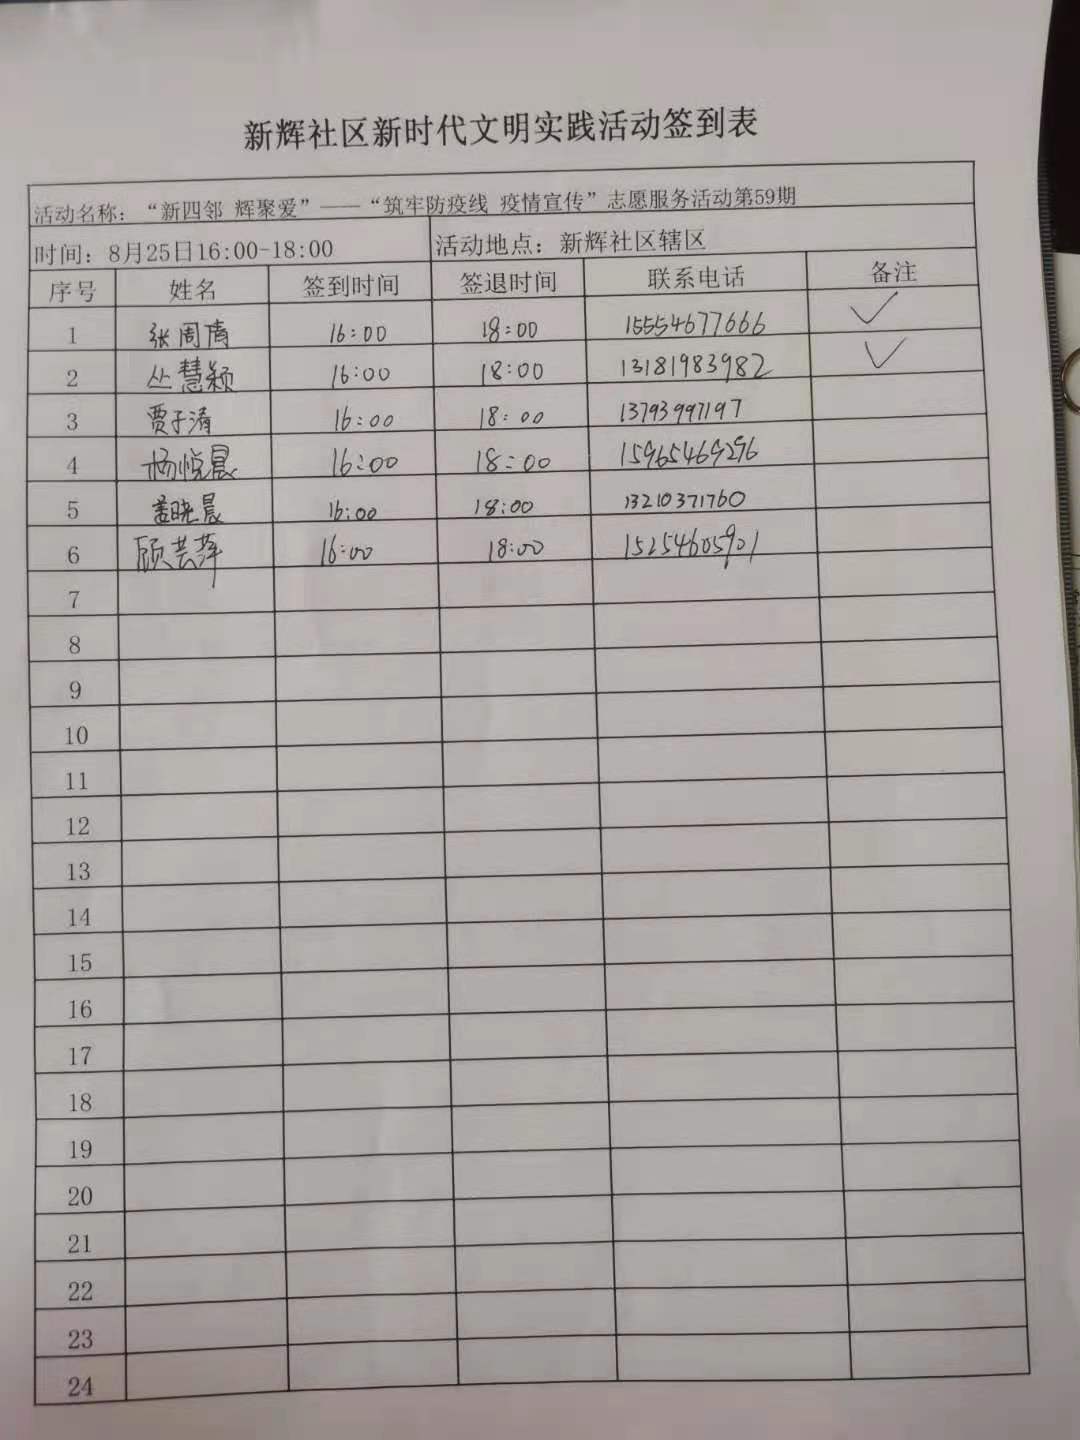 新辉社区新时代文明实践活动签到表
活动名称：“新四邻 辉聚爱”——“筑牢防疫线 疫情宣传”志愿服务活动第59期
时间：8月25日16:00-18:00 活动地点：新辉社区辖区
序号 姓名 签到时间 签退时间 联系电话 备注
1 张周 16:00 18:00 15554677666 ✓
2 丛慧颖 16:00 18:00 13181983982 ✓
3 贾子清 16:00 18:00 13793997197
4 杨悦晨 16:00 18:00 15965469296
5 孟晓晨 16:00 18:00 13210371760
6 顾芸萍 16:00 18:00 15254605901
7
8
9
10
11
12
13
14
15
16
17
18
19
20
21
22
23
24